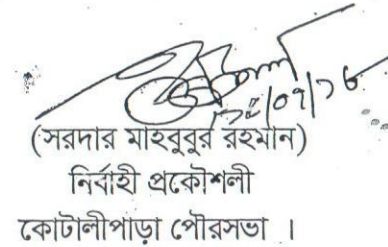 (সরদার মাহবুবুর রহমান)
নির্বাহী প্রকৌশলী
কোটালীপাড়া পৌরসভা ।